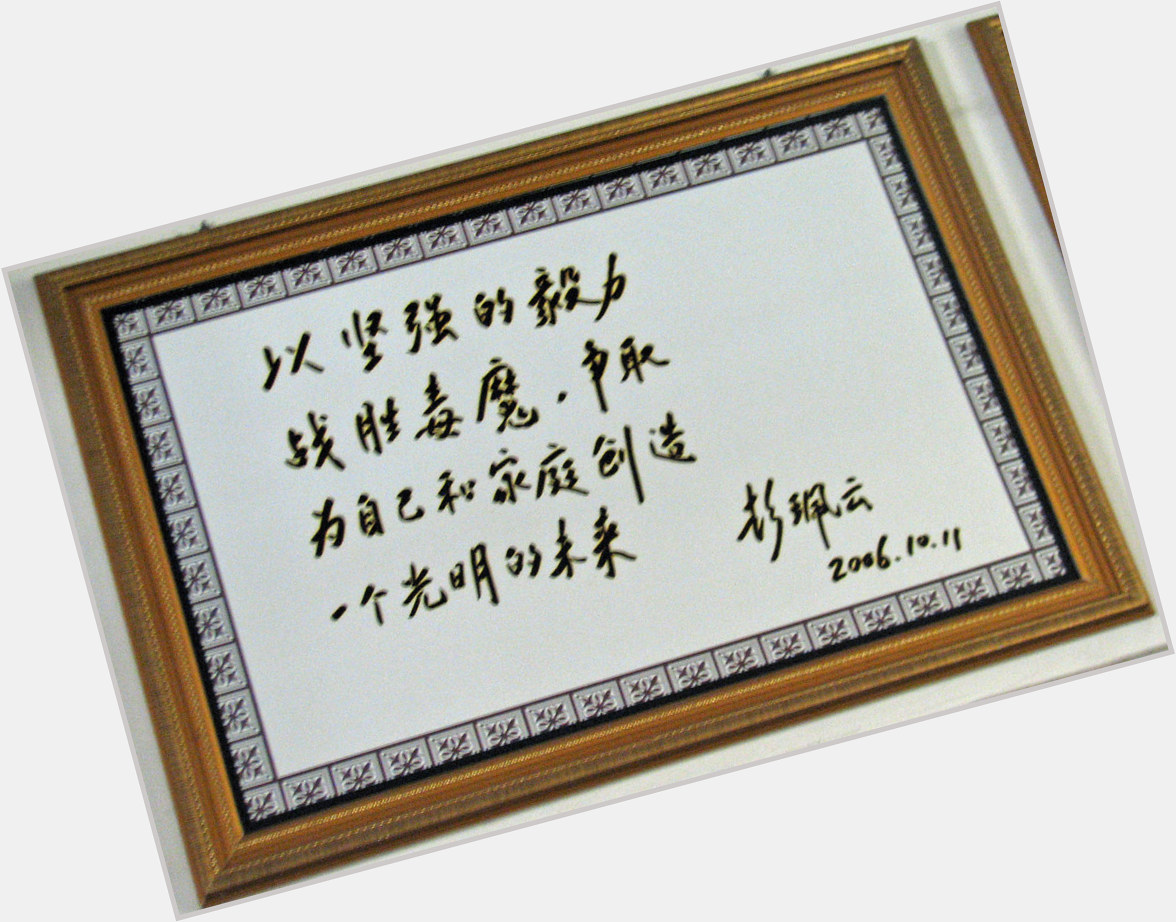 以坚强的毅力
战胜毒魔，争取
为自己和家庭创造
一个光明的未来
彭珮云
2006.10.11